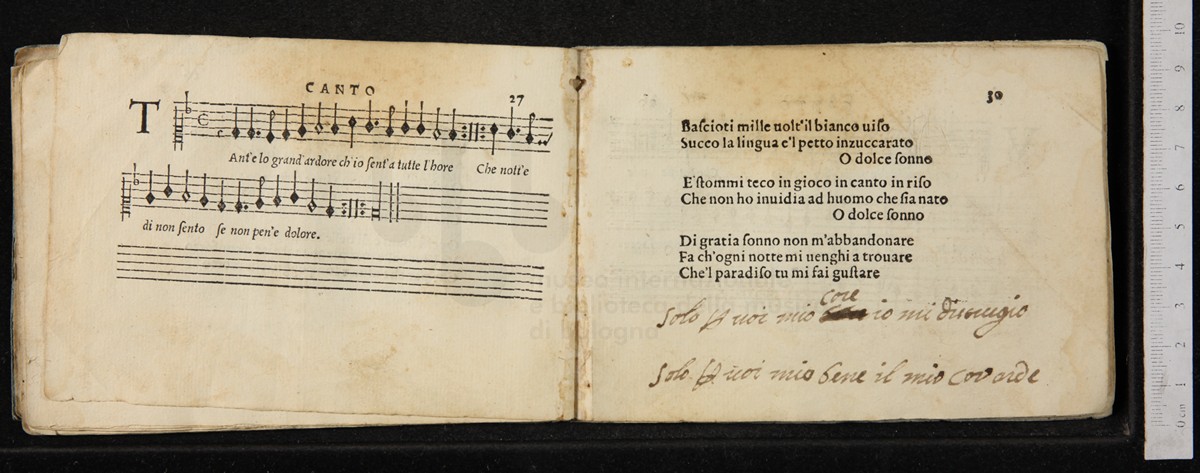 CANTO
27
T
Ant'e lo grand'ardore ch'io sent'a tutte l'hore Che nott'e
di non sento se non pen'e dolore.
30
Bascioti mille uolt'il bianco uiso
Succo la lingua e'l petto inzuccarato
O dolce sonno
E stommi teco in gioco in canto in riso
Che non ho inuidia ad huomo che sia nato
O dolce sonno
Di gratia sonno non m'abbandonare
Fa ch'ogni notte mi uenghi a trouare
Che'l paradiso tu mi fai gustare
core
Solo uoi mio io mi
Solo uoi mio bene il mio cor arde
museo internazionale
e biblioteca della musica
di bologna
0 cm 1 2 3 4 5 6 7 8 9 10